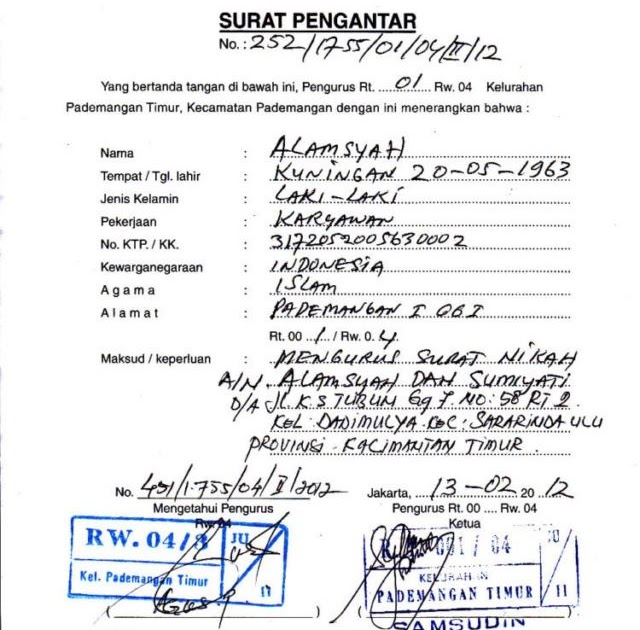 SURAT PENGANTAR
No. : 252/1755/01/04/II/12
Yang bertanda tangan di bawah ini, Pengurus Rt. ....01.... Rw. 04 Kelurahan
Pademangan Timur, Kecamatan Pademangan dengan ini menerangkan bahwa :
Nama : ALAMSYAH
Tempat / Tgl. lahir : KUNINGAN 20-05-1963
Jenis Kelamin : LAKI-LAKI
Pekerjaan : KARYAWAN
No. KTP. / KK. : 3172052005630002
Kewarganegaraan : INDONESIA
Agama : ISLAM
Alamat : PADEMANGAN I
Rt. 00 1 / Rw. 0.4.
Maksud / keperluan : MENGURUS SURAT NIKAH
A/N. ALAMSYAH DAN SUMIYATI
D/A JL. K S TUBUN Gg 7 NO: 58 RT 2
KEL: DADIMULYA KEC: SARARINDA ULU
PROVINSI KALIMANTAN TIMUR.
No. 491/1.755/04/II/2012
Jakarta, 13-02 20 12
Mengetahui Pengurus
Pengurus Rt. 00 .... Rw. 04
Rw. 04
Ketua
RW. 04/8 JU
Kel. Pademangan Timur 17
001 / 04
KELURAHAN
PADEMANGAN TIMUR 11
SAMSUDIN